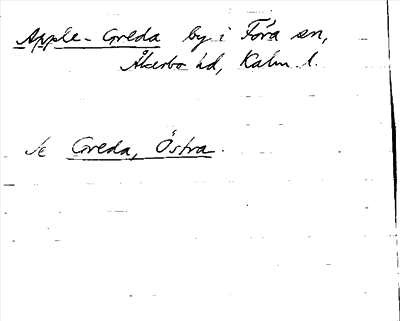 Apple-Greda by i Föra sn,
Åkerbo hd, Kalm. l.
Se Greda, Östra.